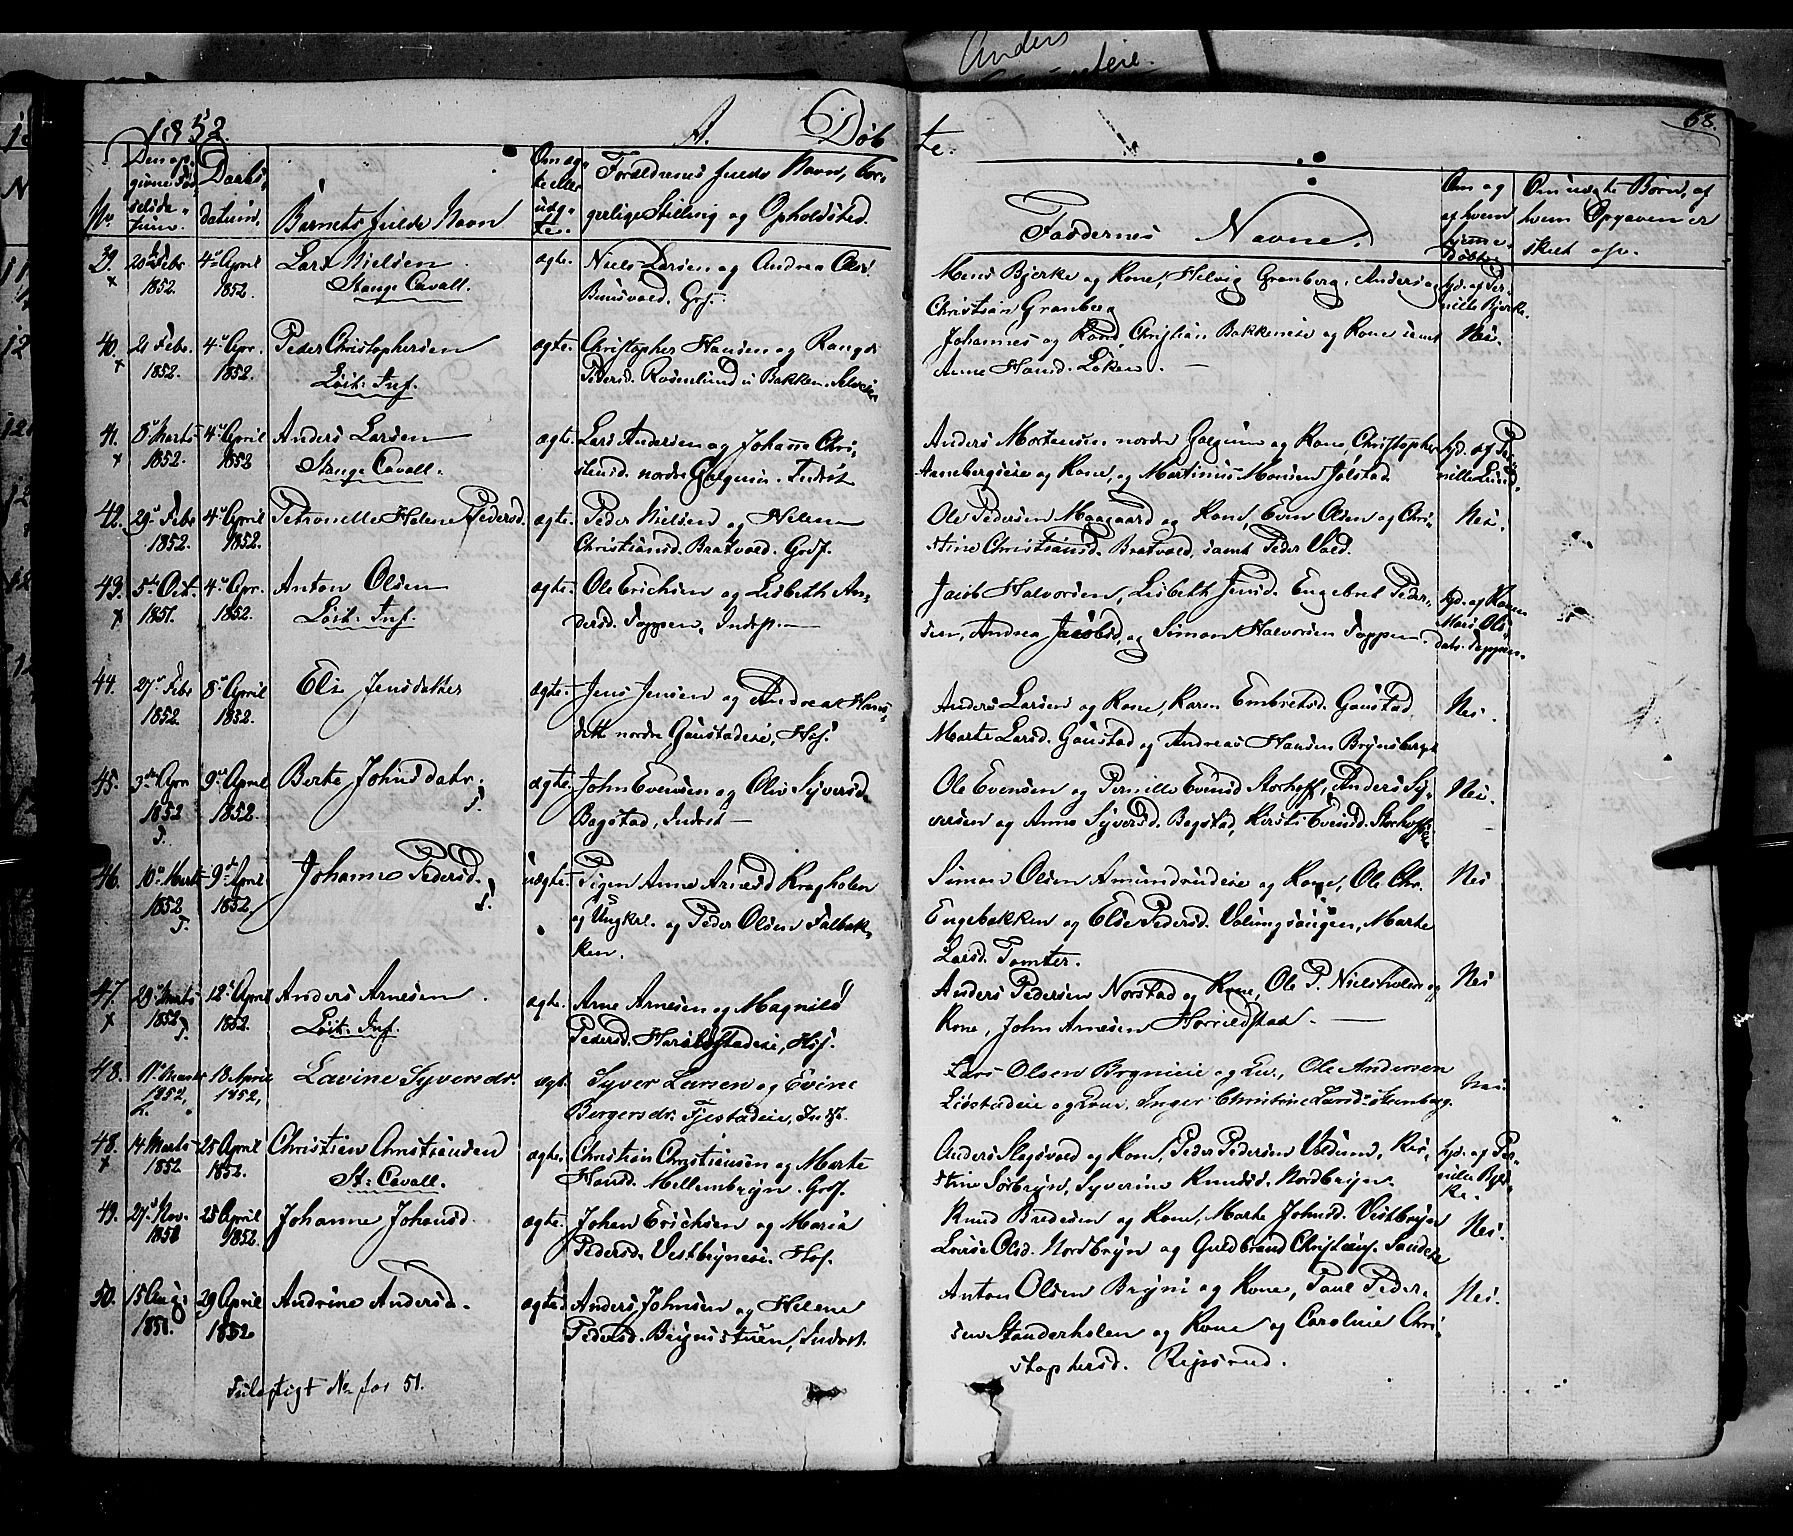 Anders
1852.
A.
Døb
te.
68.
No
Den op-
givne Fød-
selsda-
tum.
Daabs-
datum.
Barnets fulde Navn
Om æg-
te eller
uæg-
te.
Forældrenes fulde Navn, bor-
gerlige Stilling og Opholdsted.
Faddernes Navne.
Om og
af hvem
hjemme-
døbt.
Om uægte Børn, af
hvem Opgaven er
skeet
39.
20 Febr
1852.
4 April
1852.
Lars Nielsen
Stange Cavall.
ægte.
Niels Larsen og Andrea Ols.
Grf.
Mons Bjerke og Kone, Helvig Granberg, Anders og
Christian Granberg
hjd. af Per-
nille Bjerke.
40.
21 Febr.
1852.
4 Apr.
1852.
Peder Christophersen
Løit. Inf.
ægte.
Christopher Hansen og
Pedersd. Rosenlund u Bakken.
Johannes og Kone, Christian Bakkeneie og Kone samt
Anne Hansd. Løken.
Nei.
41.
8 Marts
1852.
4 April
1852
Anders Larsen
Stange Cavall.
ægte.
Lars Andersen og Johanne Chri-
stensd. nordre Indset
Anders Mortensen nordre og Kone, Christopher
Aanebergseie og Kone, og Martinius Monsen Jølstad.
hjd. af Per-
nille Lund.
42.
29 Febr
1852.
4 April
1852.
Petronelle Helene Pedersd.
ægte.
Peder Nielsen og Helene
Christiansd. Bratvold. Grf.
Ole Pedersen Moegaard og Kone, Even Olsen og Chri-
stine Christiansd. Bratvold, samt Peder Vold.
Nei.
43.
5 Oct.
1851.
4 Apr.
1852.
Anton Olsen
Løit. Inf.
ægte.
Ole Erichsen og Lisbeth An-
dersd. Toppen, Indset.
Jacob Halvorsen, Lisbeth Jensd. Engebret Peder-
sen, Andrea Jacobsd. og Simon Halvorsen Toppen.
hjd. af Karen
Mari Ols-
datr. Toppen.
44.
27 Febr
1852.
8 April
1852.
Eli Jensdatter
ægte.
Jens Jensen og Andrea Hans-
datt. nordre Gaustadeie, Hof.
Anders Larsen og Kone, Karen Embretsd. Gaustad,
Marte Larsd. Gaustad og Andreas Hansen Brynsberget
Nei.
45.
3 Apr
1852
9 April
1852.
Berte Johnsdatr.
ægte.
John Evensen og Oliv Syversd.
Bagstad, Indset
Ole Evensen og Pernille Evensd. Storhoff, Anders Sy-
versen og Anne Syversd. Bagstad, Kirsti Evensd. Storhoff
Nei.
46.
10 Marts
1852
9 April
1852.
Johanne Pedersd.
uægte.
Pigen Anne Arnesd. Kragholen
og Ungkrl. og Peder Olsen Falbak-
ken.
Simon Olsen Amundrudeie og Kone, Ole Chr.
Engebakken og Else Pedersd. Volungsaugen, Marte
Larsd. Tomter.
Nei
47.
28 Marts
1852
12 April
1852.
Anders Arnesen
Løit. Inf.
ægte.
Arne Arnesen og Magnild
Pedersd. Haraldstadeie, Hof.
Anders Pedersen Norstad og Kone, Ole P. Nielsholen og
Kone, John Arnesen Horrildstad.
Nei
48.
17 Marts
1852,
18 April
1852,
Lavine Syversdr.
ægt.
Syver Larsen og Evine
Bergersdr. Tjestadeie, Inds.
Lars Olsen Bryneeie og Kone, Ole Andersen
Liestadeie og Kone. Inger Christine Larsd. Stenberg.
Nei
48.
14 Marts
1852.
25 April
1852.
Christian Christiansen
St. Cavall.
ægte.
Christian Christiansen og Marte
Hansd. Mellembryn. Grf.
Anders Slagsvold og Kone, Peder Pedersen Voldum, Kri-
stine Sørbryn, Syverine Knudsd. Nordbryn.
hjd. af Per-
nille Bjer-
ke.
49.
27 Nov.
1851
25 April
1852.
Johanne Johansd.
ægte.
Johan Erichsen og Maria
Pedersd. Vestbryneie. Hof.
Knud Bredesen og Kone, Marte Johnsd. Vestbryn
Lovise Olsd. Nordbryn og Guldbrand Christians. Sandeie
Nei.
50.
15 Aug.
1851.
29 April
1852
Andrine Andersd.
ægte
Anders Johnsen og Helene
Pedersd. Brynistuen, Indset.
Anton Olsen Bryni og Kone, Paul Peder-
sen Sønderholen og Kone og Caroline Chri-
stophersd. Ripsrud.
Nei.
No for 51.